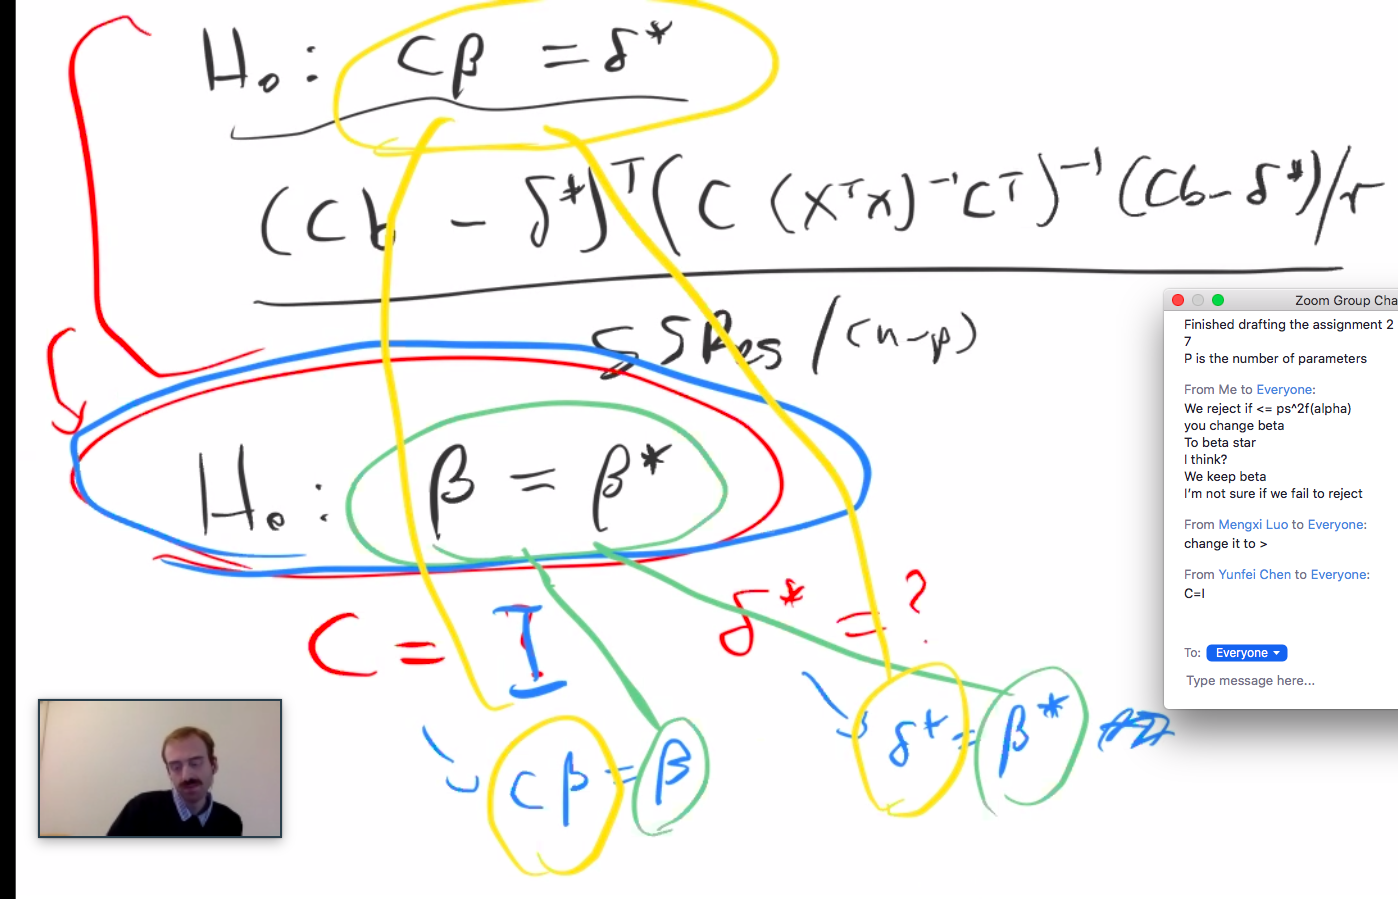 H₀: Cβ = δ*
(Cb - δ*)ᵀ(C (XᵀX)⁻¹Cᵀ)⁻¹(Cb - δ*)/r
SSRes /(n-p)
H₀: β = β*
C = I
δ* = ?
Cβ = β
δ* = β*
Zoom Group Cha
Finished drafting the assignment 2
7
P is the number of parameters
From Me to Everyone:
We reject if <= ps^2f(alpha)
you change beta
To beta star
I think?
We keep beta
I'm not sure if we fail to reject
From Mengxi Luo to Everyone:
change it to >
From Yunfei Chen to Everyone:
C=I
To: Everyone
Type message here...